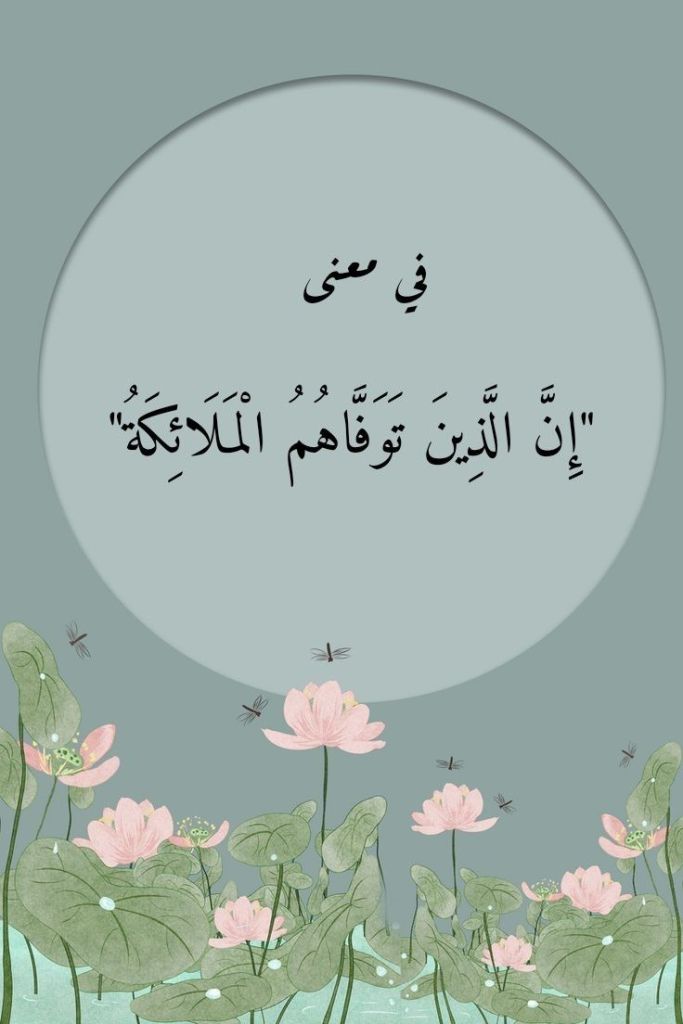 في معنى
"إِنَّ الَّذِينَ تَوَفَّاهُمُ الْمَلَائِكَةُ"